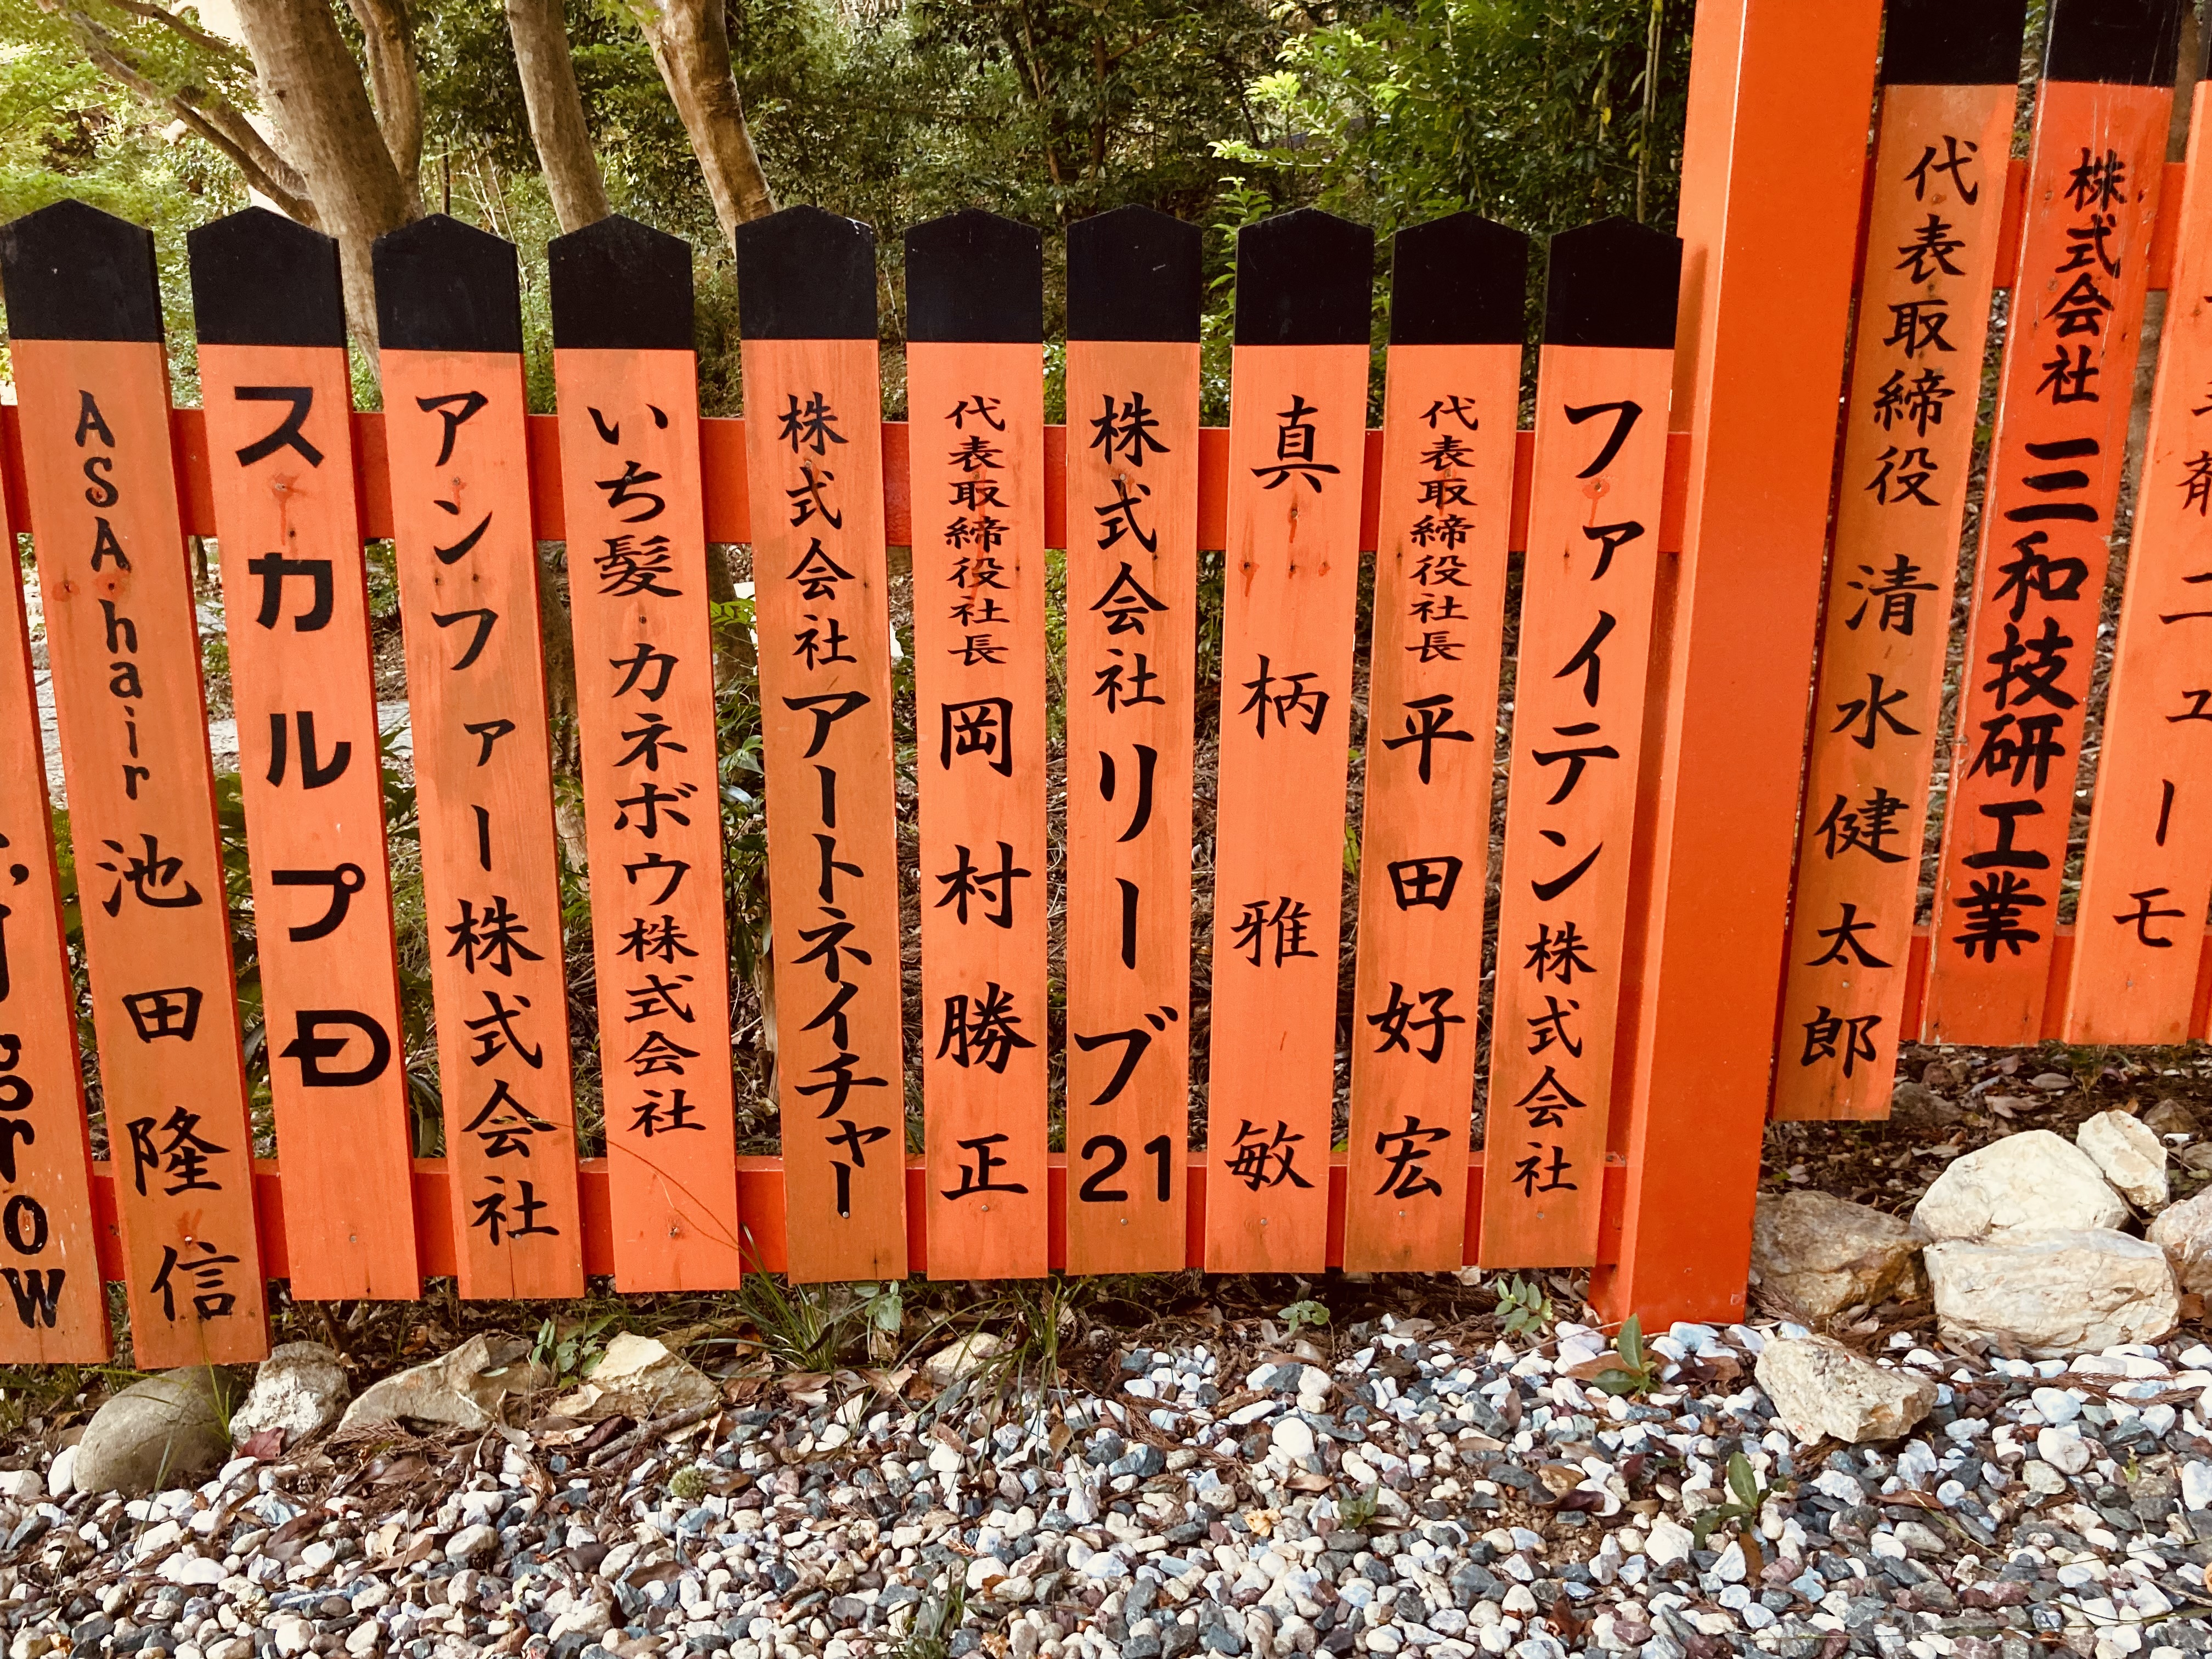 株式会社 三和技研工業
代表取締役 清水健太郎
ファイテン株式会社
代表取締役社長 平田好宏
真柄雅敏
株式会社リーブ21
代表取締役社長 岡村勝正
株式会社アートネイチャー
いち髪・カネボウ株式会社
アンファー株式会社
スカルプD
ASA hair 池田隆信